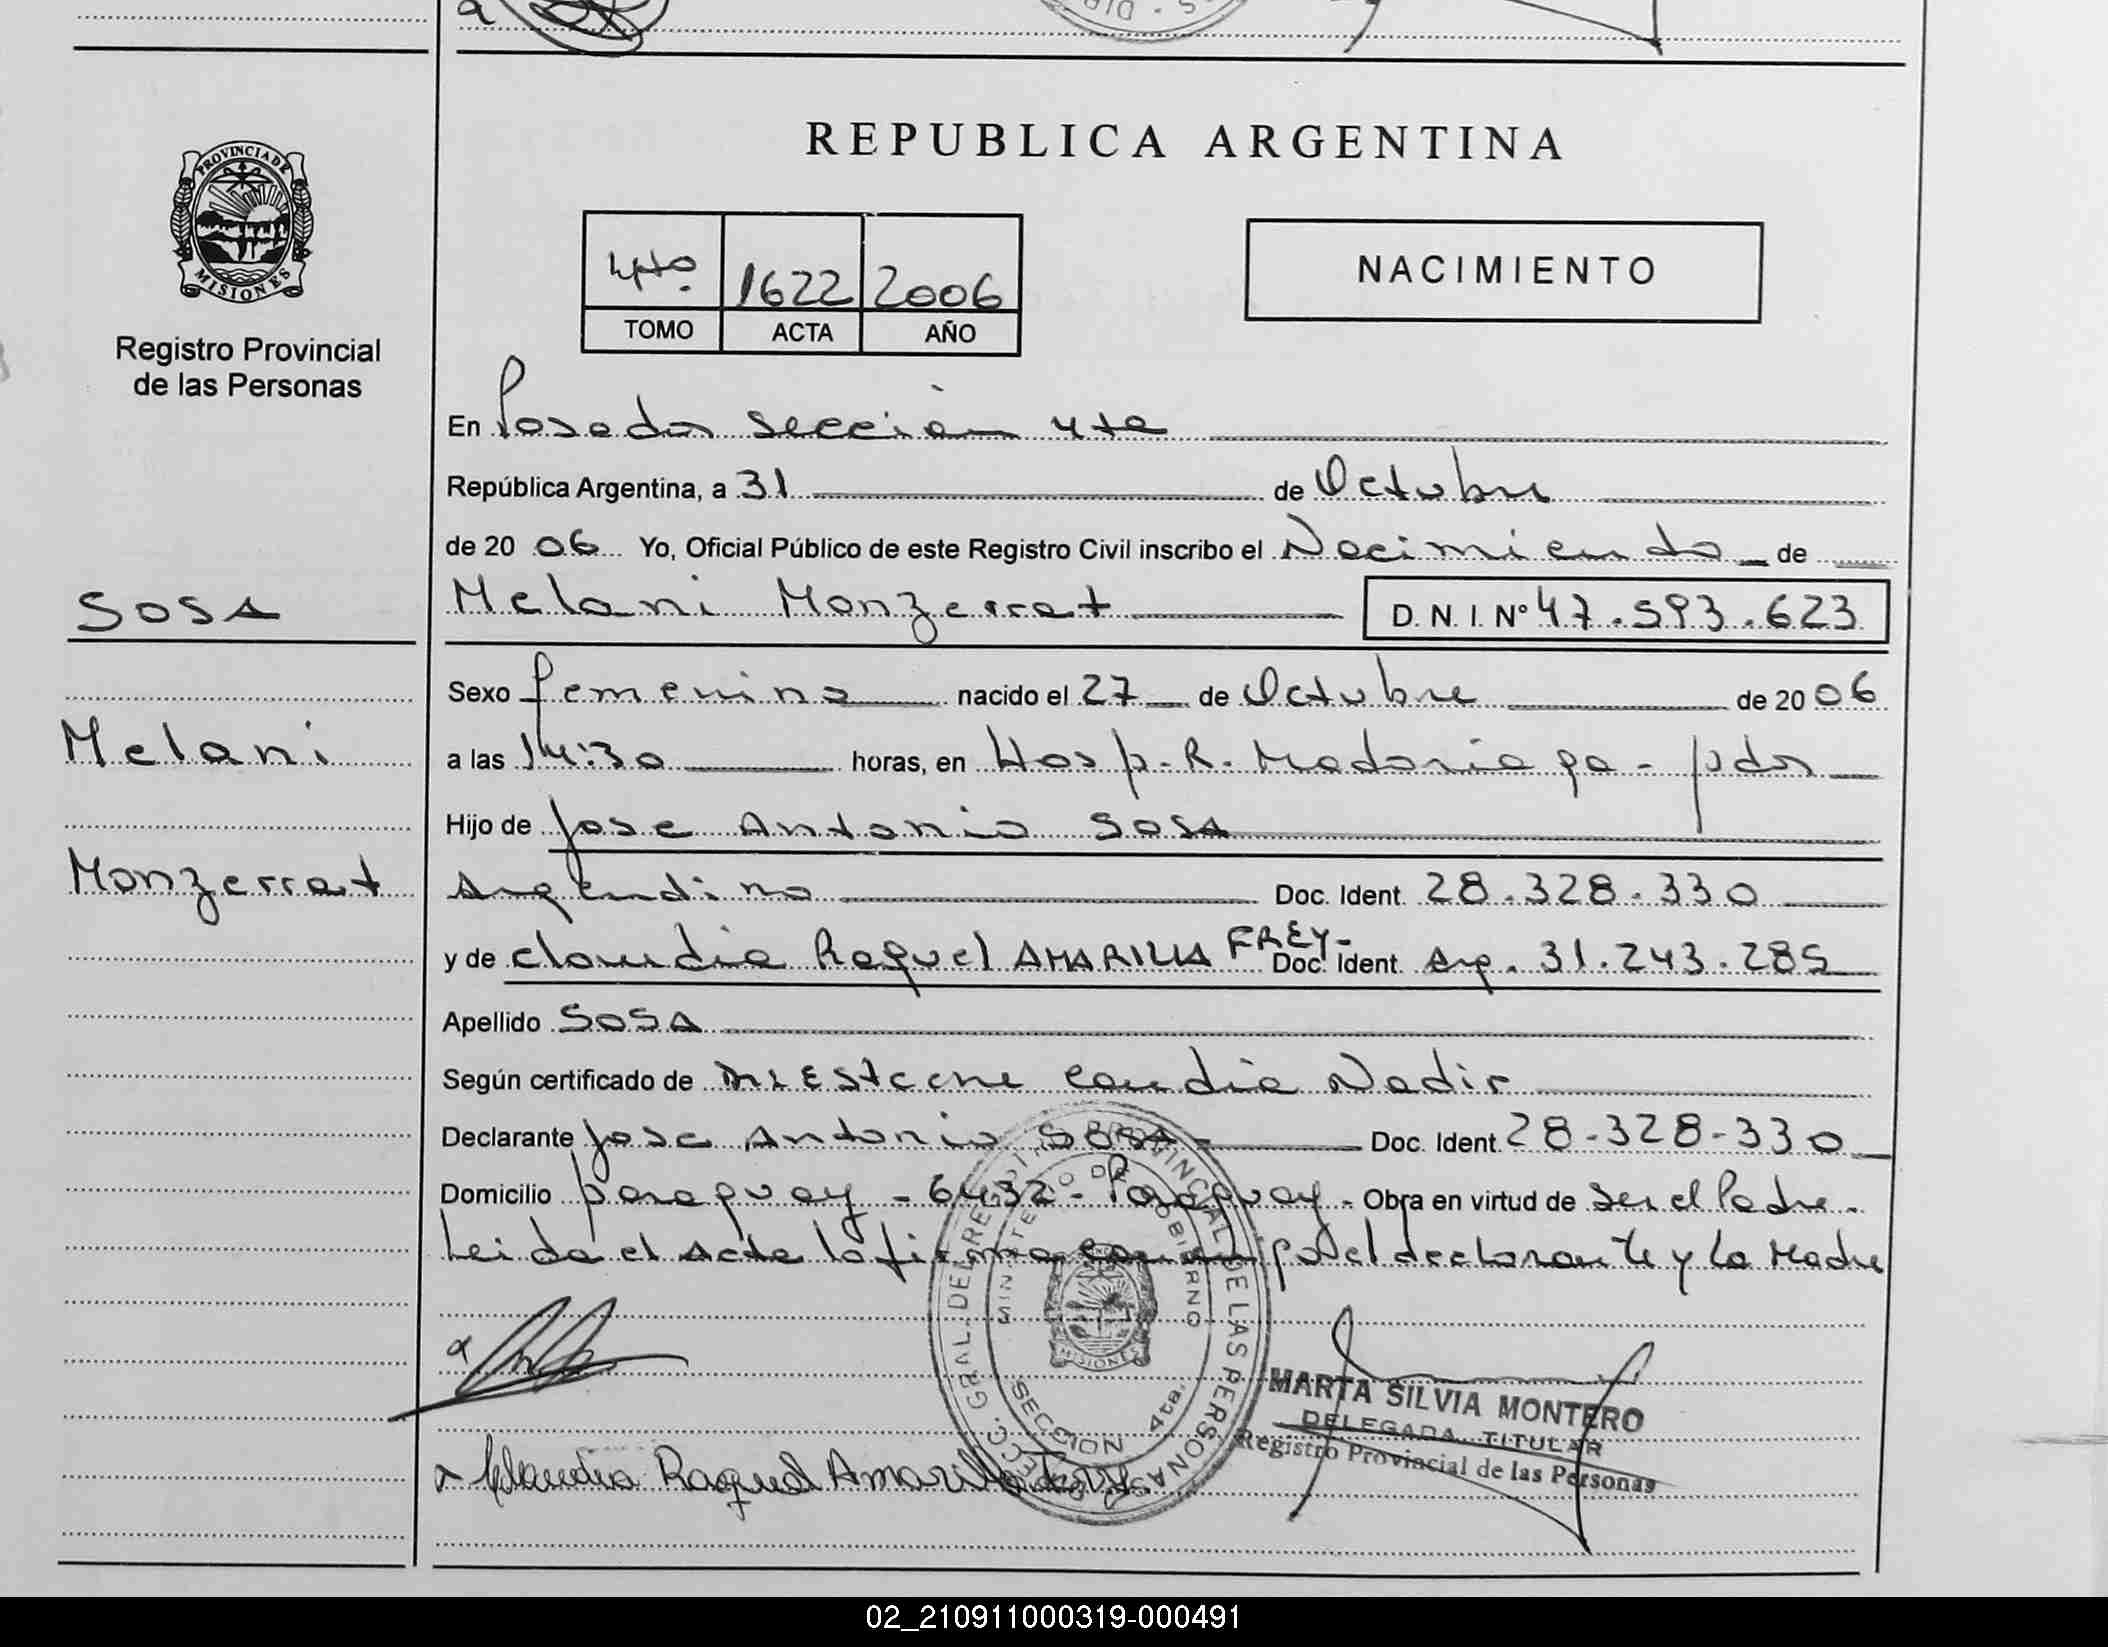 REPUBLICA ARGENTINA
PROVINCIA DE
MISIONES
Registro Provincial
de las Personas
4to. 1622 2006
TOMO ACTA AÑO
NACIMIENTO
En Posadas sección 4ta
República Argentina, a 31 de Octubre
de 20 06 Yo, Oficial Público de este Registro Civil inscribo el Nacimiento de
SOSA
Melani Monzerrat D. N. I. Nº 47.593.623
Sexo femenino nacido el 27 de Octubre de 20 06
Melani
a las 14:30 horas, en Hosp. R. Madariaga - pdas
Hijo de Jose Antonio SOSA
Monzerrat
Argentino Doc. Ident. 28.328.330
y de Claudia Raquel AMARILLA FREY- Doc. Ident. Arg. 31.243.285
Apellido SOSA
Según certificado de Nadir
Declarante Jose Antonio SOSA Doc. Ident. 28-328-330
Domicilio Paraguay - 6432 - Paraguay - Obra en virtud de ser el Padre.
Leida el Acta la firma por el declarante y la Madre
DIRECC. GRAL. DEL REGISTRO PROVINCIAL DE LAS PERSONAS
MINISTERIO DE GOBIERNO
MISIONES
SECCION 4ta.
MARTA SILVIA MONTERO
DELEGADA TITULAR
Registro Provincial de las Personas
Claudia Raquel Amarilla Frey
02_210911000319-000491